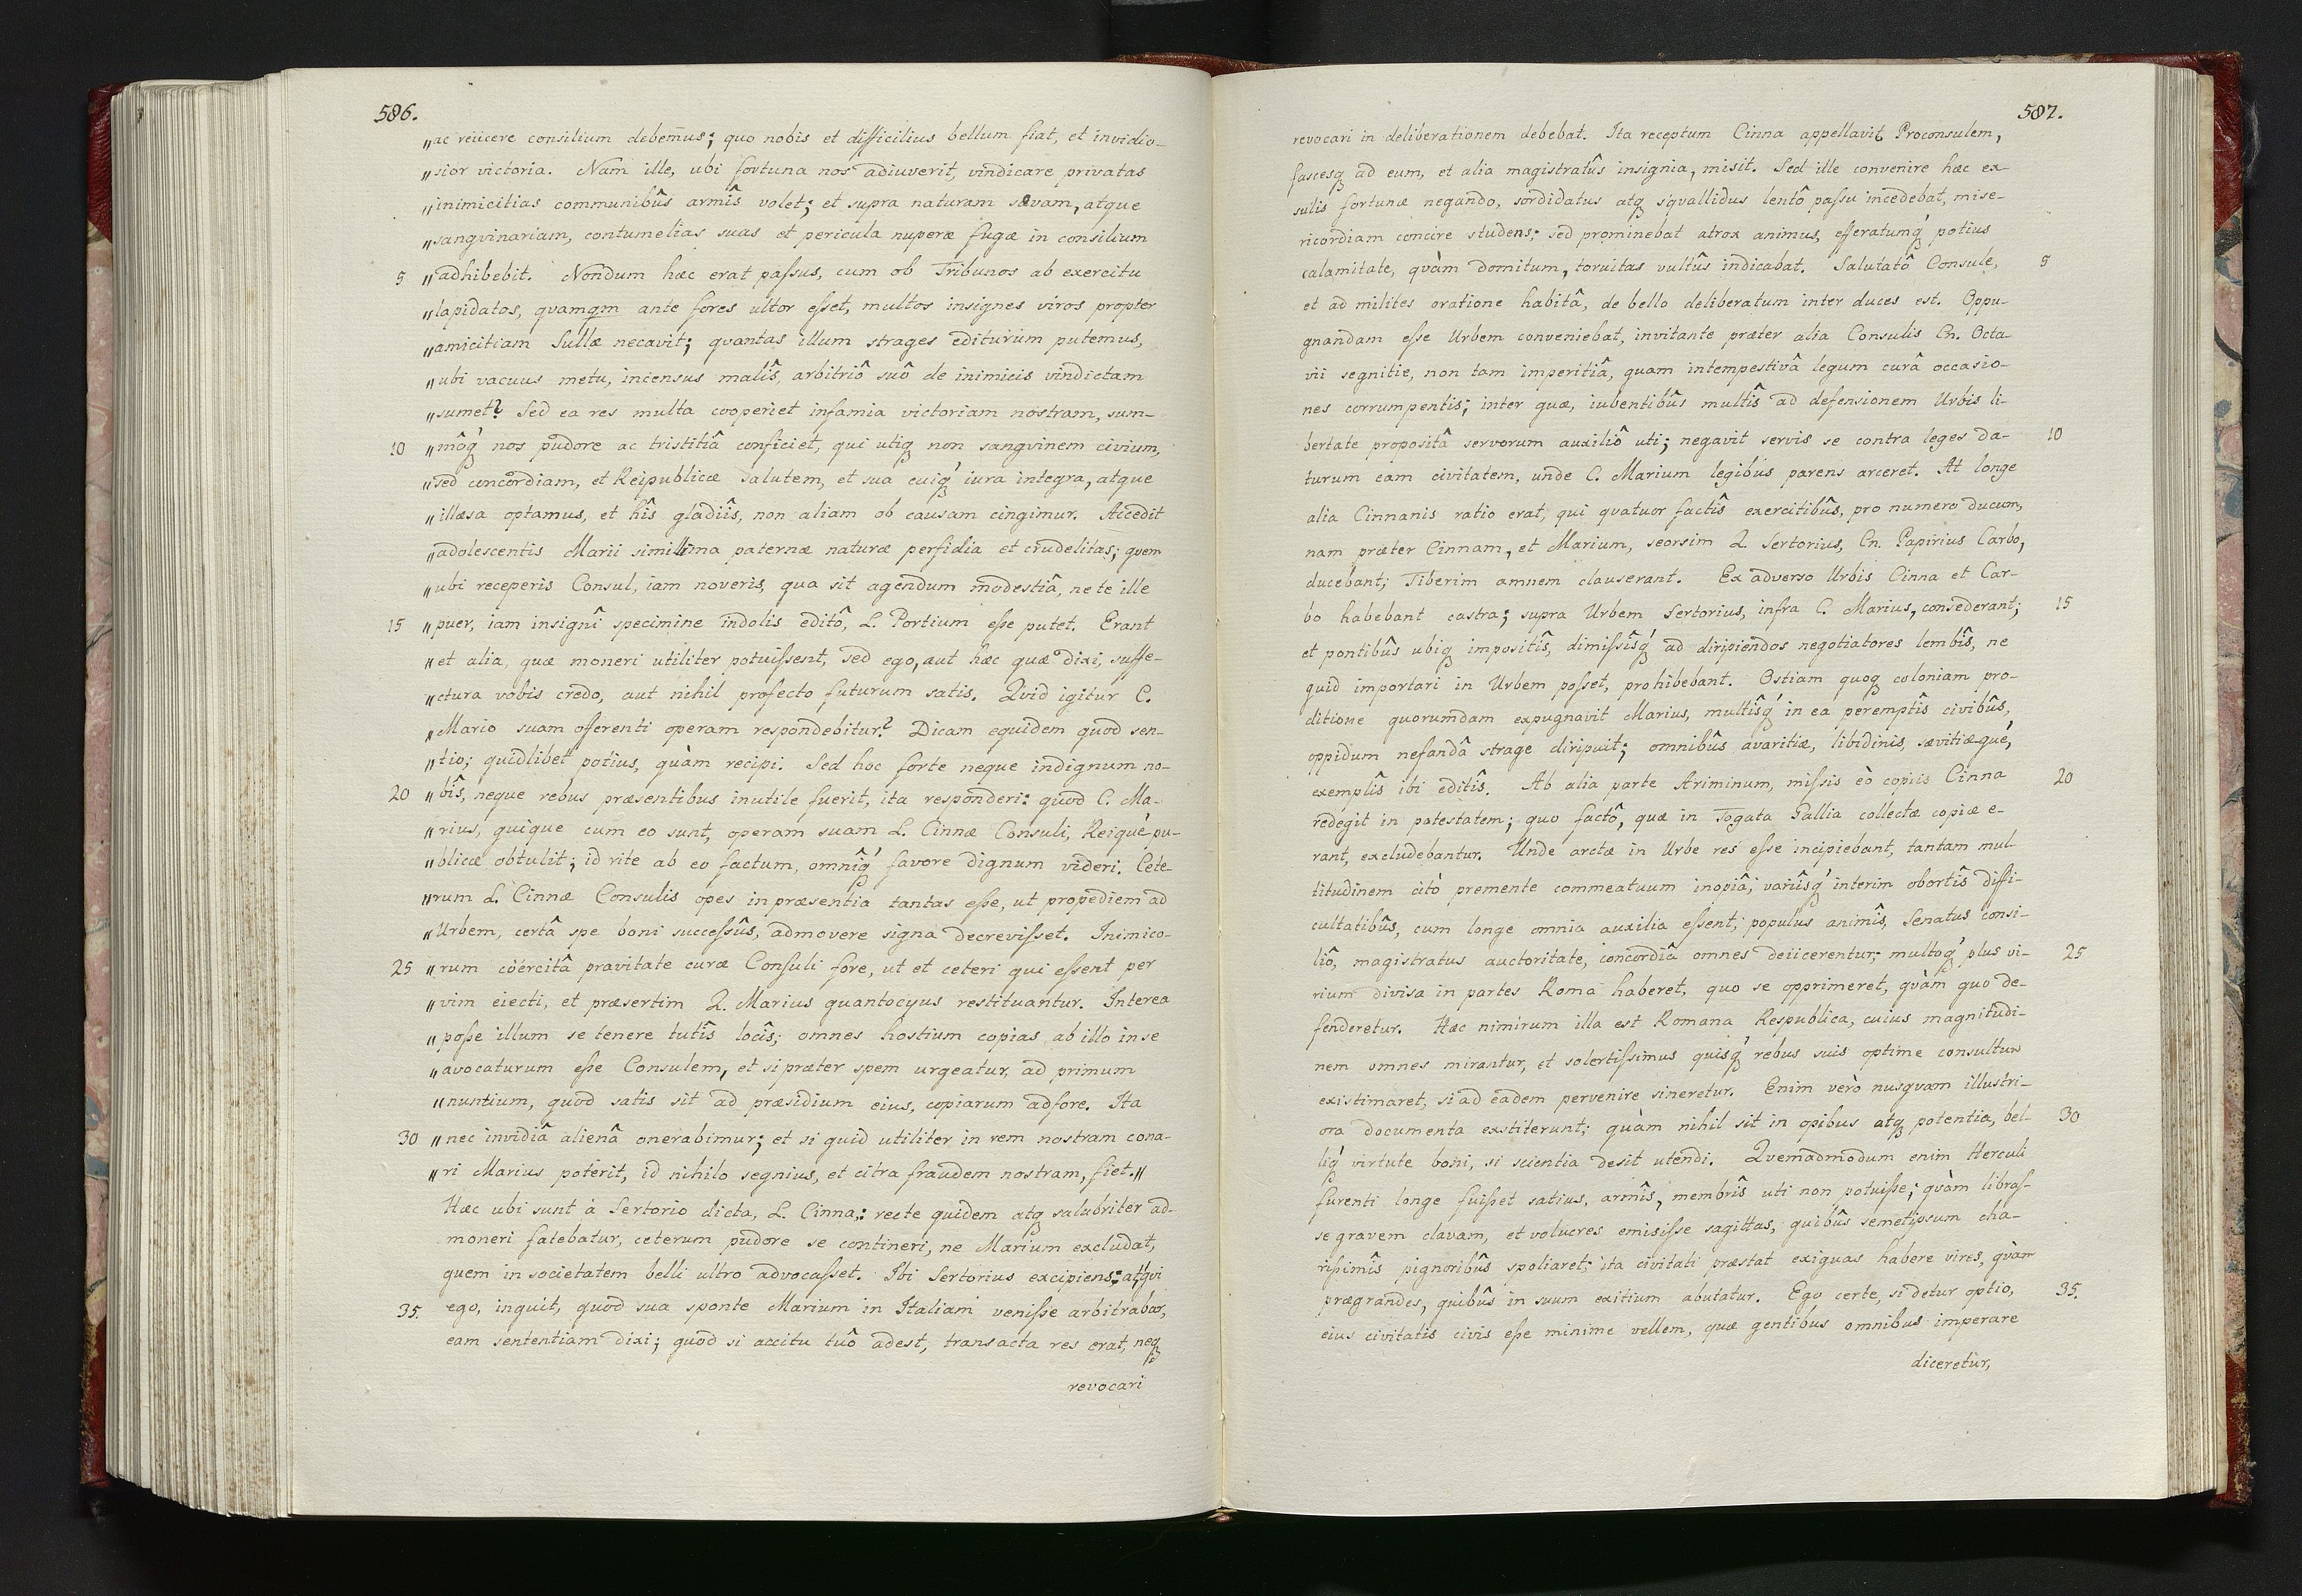 586.
„ac reiicere consilium debem̃us; quo nobis et difficilius bellum fiat, et invidio-
„sior victoria. Nam ille, ubi fortuna nos adiuverit, vindicare privatas
„inimicitias communibûs armîs volet; et supra naturam sævam, atque
„sangvinariam, contumelias suas et pericula nuperæ fugæ in consilium
5 „adhibebit. Nondum hæc erat paſsus, cum ob Tribunos ab exercitu
„lapidatos, qvamqm ante fores ultor eſset, multos insignes viros propter
„amicitiam Sullæ necavit; qvantas illum strages editurum putemus,
„ubi vacuus metu, incensus malîs, arbitriô suô de inimicis vindictam
„sumet? Sed ea res multa cooperiet infamia victoriam nostram, sum-
10 „môq́ nos pudore ac tristitiâ conficiet, qui utiq non sangvinem civium,
„sed concordiam, et Reipublicæ salutem, et sua cuiq́ iura integra, atque
„illæsa optamus, et hîs gladiîs, non aliam ob causam cingimur. Accedit
„adolescentis Marii simillima paternæ naturæ perfidia et crudelitas; qvem
„ubi receperis Consul, iam noveris, qua sit agendum modestiâ, ne te ille
15 „puer, iam insignî specimine indolis editô, L. Portium eſse putet. Erant
„et alia, quæ moneri utiliter potuiſsent, sed ego, aut hæc quæ dixi, suffe-
„ctura vobis credo, aut nihil profecto futurum satis. Qvid igitur C.
„Mario suam offerenti operam respondebitur? Dicam equidem quod sen-
„tio; quidlibet potius, quàm recipi. Sed hoc forte neque indignum no-
20 „bîs, neque rebus præsentibus inutile fuerit, ita responderi: quod C. Ma-
„rius, quique cum eo sunt, operam suam L. Cinnæ Consuli, Reiqué pu-
„blicæ obtulit; id rite ab eo factum, omnîq́ favore dignum videri. Cete-
„rum L. Cinnæ Consulis opes in præsentia tantas eſse, ut propediem ad
„Urbem, certâ spe boni succeſsûs, admovere signa decreviſset. Inimico-
25 „rum cöercitâ pravitate curæ Conſuli fore, ut et ceteri qui eſsent per
„vim eiecti, et præsertim Q. Marius quantocyus restituantur. Interea
„poſse illum se tenere tutîs locîs; omnes hostium copias ab illo in se
„avocaturum eſse Consulem, et si præter spem urgeatur, ad primum
„nuntium, quod satis sit ad præsidium eius, copiarum adfore. Ita
30 „nec invidiâ alienâ onerabimur; et si quid utiliter in rem nostram cona-
„ri Marius poterit, id nihilo segnius, et citra fraudem nostram, fiet.„
Hæc ubi sunt à Sertorio dicta, L. Cinna,: recte quidem atq salubriter ad-
moneri fatebatur, ceterum pudore se contineri, ne Marium excludat,
quem in societatem belli ultro advocaſset. Ibi Sertorius excipiens: atqvi
35. ego, inquit, quod sua sponte Marium in Italiam veniſse arbitrabar,
eam sententiam dixi; quod si accitu tuô adest, transacta res erat, neq
revocari
587.
revocari in deliberationem debebat. Ita receptum Cinna appellavit Proconsulem,
fascesq ad eum, et alia magistratûs insignia, misit. Sed ille convenire hæc ex-
sulis fortunæ negando, sordidatus atq sqvallidus lentô paſsu incedebat, mise-
ricordiam concire studens; sed prominebat atrox animus, efferatumq́ potius
calamitate, qvàm domitum, torvitas vultûs indicabat. Salutatô Consule, 5
et ad milites oratione habitâ, de bello deliberatum inter duces est. Oppu-
gnandam eſse Urbem conveniebat, invitante præter alia Consulis Cn. Octa-
vii segnitie, non tam imperitiâ, quam intempestivâ legum curâ occasio-
nes corrumpentis; inter quæ, iubentibûs multîs ad defensionem Urbis li-
bertate propositâ servorum auxiliô uti; negavit servis se contra leges da- 10
turum eam civitatem, unde C. Marium legibus parens arceret. At longe
alia Cinnanis ratio erat, qui qvatuor factîs exercitibûs, pro numero ducum,
nam præter Cinnam, et Marium, seorsim Q. Sertorius, Cn. Papirius Carbo,
ducebant; Tiberim amnem clauserant. Ex adverso Urbis Cinna et Car-
bo habebant castra; supra Urbem Sertorius, infra C. Marius, consederant; 15
et pontibûs ubiq impositîs, dimiſsîsq́ ad diripiendos negotiatores lembîs, ne
quid importari in Urbem poſset, prohibebant. Ostiam quoq coloniam pro-
ditione quorumdam expugnavit Marius, multîsq́ in ea peremptîs civibûs,
oppidum nefandâ strage diripuit; omnibûs avaritiæ, libidinis, sævitiæqué,
exemplîs ibi editîs. Ab alia parte Ariminum, miſsis eò copiis Cinna 20
redegit in potestatem; quo factô, quæ in Togata Gallia collectæ copiæ e-
rant, excludebantur. Unde arctæ in Urbe res eſse incipiebant, tantam mul-
titudinem citò premente commeatuum inopiâ; variîsq́ interim obortîs diffi-
cultatibûs, cum longe omnia auxilia eſsent; populus animîs, Senatus consi-
liô, magistratus auctoritate, concordiâ omnes deiicerentur; multoq́ plus vi- 25
rium divisa in partes Roma haberet, quo se opprimeret, qvàm quo de-
fenderetur. Hæc nimirum illa est Romana Respublica, cuius magnitudi-
nem omnes mirantur, et solertiſsimus quisq́ rebus suis optime consultum
existimaret, si ad eadem pervenire sineretur. Enim verò nusqvam illustri-
ora documenta exstiterunt; quàm nihil sit in opibus atq potentia, bel- 30
liq́ virtute boni, si scientia desit utendi. Qvemadmodum enim Herculi
furenti longe fuiſset satius, armîs, membrîs uti non potuiſse; qvàm libras-
se gravem clavam, et volucres emisiſse sagittas, quibûs semetipsum cha-
riſsimîs pignoribûs spoliaret; ita civitati præstat exiguas habere vires, qvàm
prægrandes, quibûs in suum exitium abutatur. Ego certe, si detur optio, 35.
eius civitatis civis eſse minime vellem, quæ gentibus omnibus imperare
diceretur,